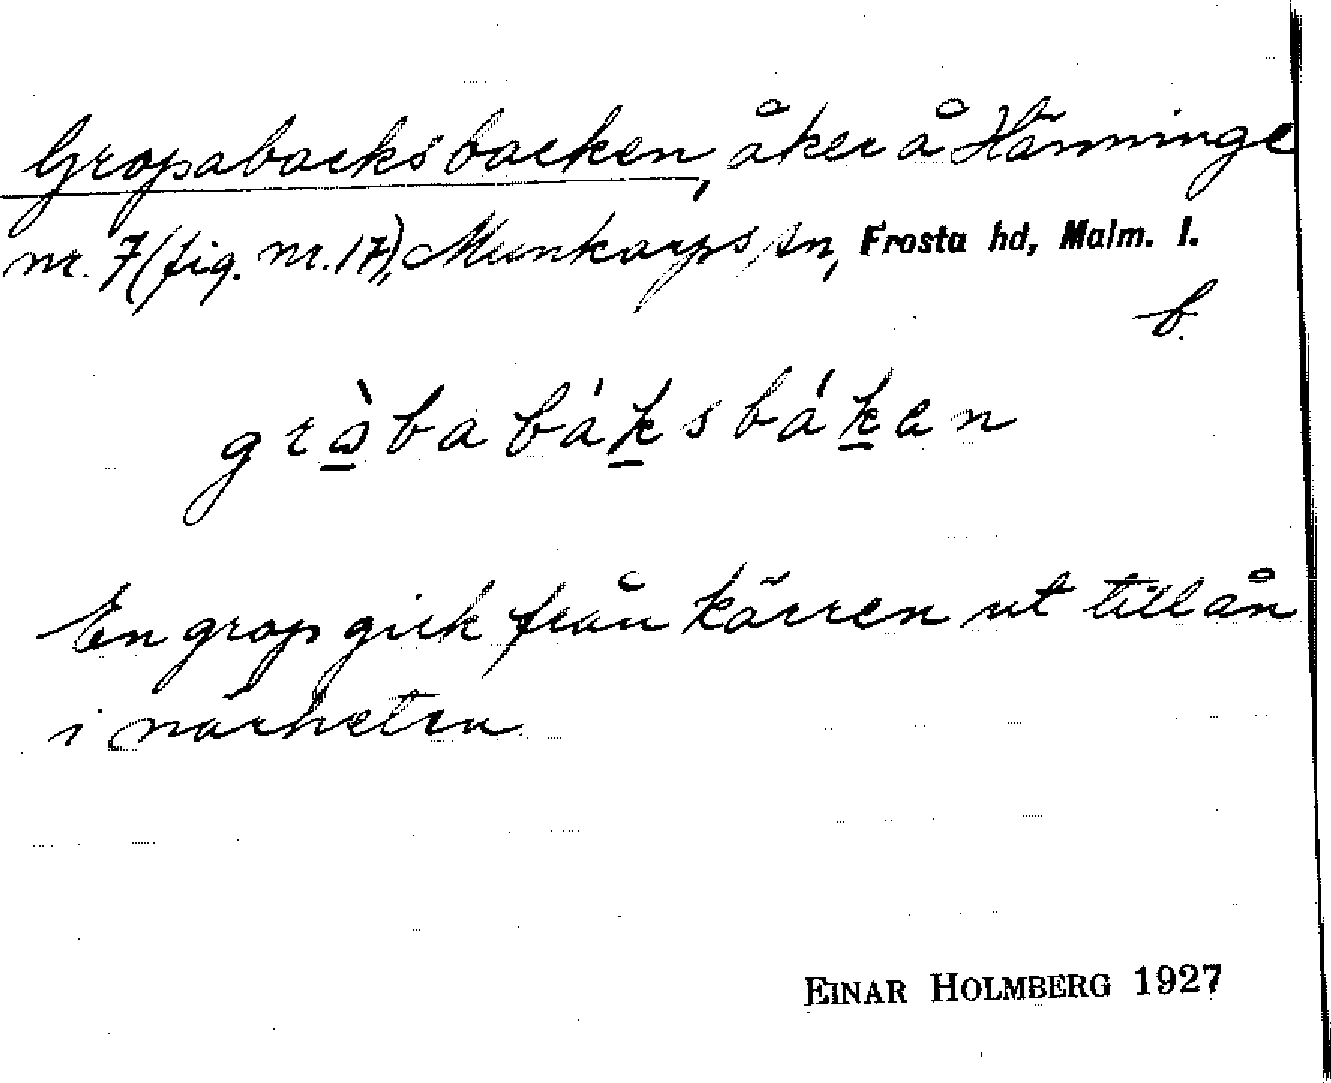 Gropabacksbacken, åker å Hänninge
nr. 7 (fig. nr. 17), Munkarps sn, Frosta hd, Malm. l.
b.
gràbabáksbáken
En grop gick från kärren ut till ån
i närheten
EINAR HOLMBERG 1927